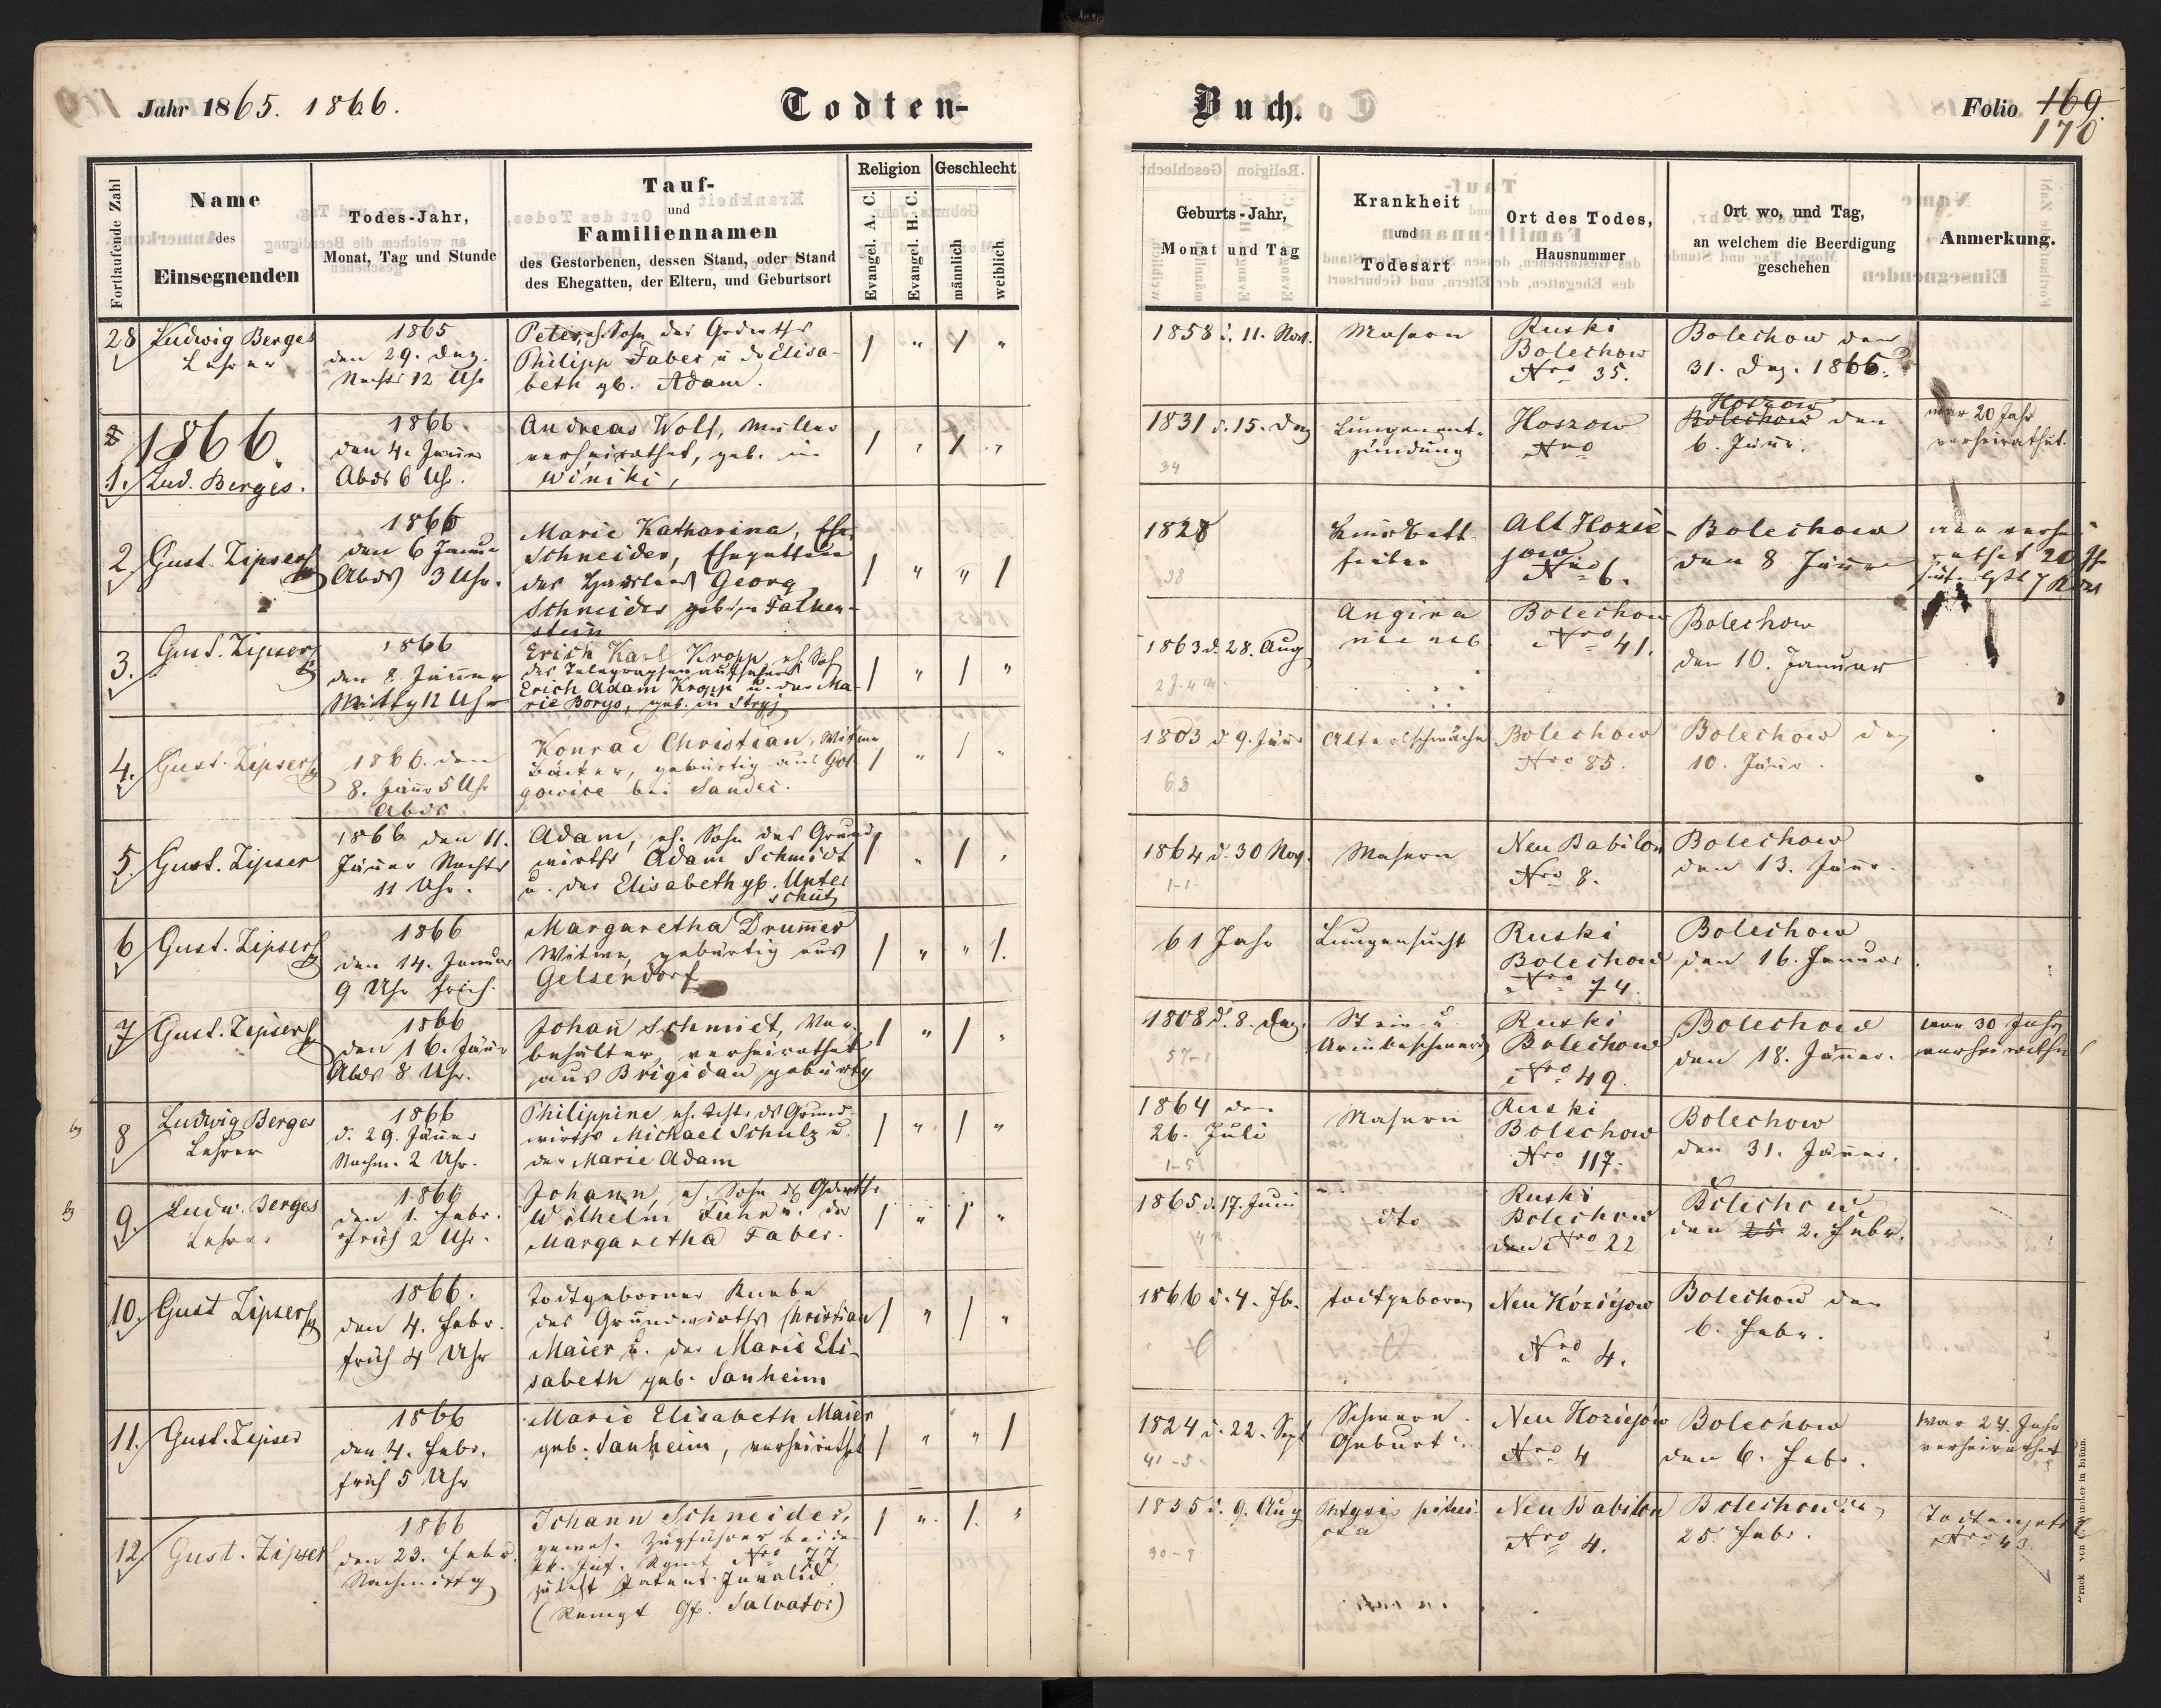 Jahr 1865. 1866.
Todten-
Buch.
Folio 169.
170
Fortlaufende Zahl
Name
des
Einsegnenden
Todes-Jahr,
Monat, Tag und Stunde
Tauf-
und
Familiennamen
des Gestorbenen, dessen Stand, oder Stand
des Ehegatten, der Eltern, und Geburtsort
Religion
Evangel. A. C.
Evangel. H. C.
Geschlecht
männlich
weiblich
Geburts-Jahr,
Monat und Tag
Krankheit
und
Todesart
Ort des Todes,
Hausnummer
Ort wo, und Tag,
an welchem die Beerdigung
geschehen
Anmerkung.
28
Ludwig Berges
Lehrer
1865
den 29. Dez.
Nachts 12 Uhr
Peter, eh. Sohn des Grdwths
Philipp Faber u. dr Elisa-
beth gb. Adam.
/ " / "
1858 d. 11. Nov.
Masern
Ruski
Bolechow
Nro 35.
Bolechow den
31. Dez. 1866.
1866.
1.
Lud. Berges.
1866.
den 4. Jänner
Abds 6 Uhr.
Andreas Wolf, Müller
verheirathet, geb. in
Winiki,
/ " / "
1831 d. 15. Dez
34
Lungenent-
zündung
Hoszow
Nro
Hoszow
Bolechow den
6. Jänr.
war 20 Jahr
verheirathet.
2
Gust. Zipser
1866
den 6 Januar
Abds 3 Uhr.
Marie Katharina, Ehe
Schneider, Ehegattin
des Georg
Schneider geborne Falken-
stein
/ " " /
1828
38
Kindbett
fieber
Alt Hozie-
jow
Nro 6.
Bolechow
den 8 Jänner
3.
Gust. Zipser
1866
den 8. Jänner
Mittg 12 Uhr
Erich Karl Kropp, eh. Soh
des Telegraphenaufsehers
Erich Adam Kropp u. der Ma-
rie Borys, geb. in Stryj
/ " / "
1863 d. 28. Aug
2 J. 4 M.
Angina
Bolechow
Nro 41.
Bolechow
den 10. Januar
4.
Gust. Zipser
1866. den
8. Jänr 5 Uhr
Abds
Konrad Christian, Witwer
Bäcker, gebürtig aus Gol-
gowice bei Sandec.
/ " / "
1803 d 9. Jänr
63
Altersschwäche
Bolechow
Nro 85.
Bolechow den
10. Jänr.
5.
Gust. Zipser
1866 den 11.
Jänner Nachts
11 Uhr.
Adam, eh. Sohn des Grund
wirths Adam Schmidt
u. der Elisabeth gb. Unter
schütz
/ " / "
1864 d. 30 Nov.
1-1
Masern
Neu Babilon
Nro 8.
Bolechow
den 13. Jänr.
6
Gust. Zipser
1866
den 14. Januar
9 Uhr früh.
Margaretha Drumer
Witwe, gebürtig aus
Gelsendorf
/ " " /.
61 Jahr
Lungensucht
Ruski
Bolechow
Nro 74.
Bolechow
den 16. Januar.
7
Gust. Zipser
1866
den 16. Jänr
Abds 8 Uhr.
Johan Schmidt, Vor-
behälter, verheirathet
aus Brigidau gebürtig
/ " / "
1808 d. 8. Dez.
57-1
Stein u
Urinbeschwerd
Ruski
Bolechow
Nro 49.
Bolechow
den 18. Jänner.
war 30 Jahr
verheirathet
8
Ludwig Berges
Lehrer
1866
d. 29. Jänner
Nachm. 2 Uhr.
Philippine eh. Tocht. ds Grund-
wirths Michael Schulz u.
der Marie Adam
/ " / "
1864 den
26. Juli
1-5
Masern
Ruski
Bolechow
Nro 117.
Bolechow
den 31. Jänner.
9.
Ludw. Berges
Lehrer
1866
den 1. Febr.
früh 2 Uhr.
Johann, eh. Sohn ds Grdwths
Wilhelm Fuhr u. der
Margaretha Faber.
/ " / "
1865 d. 17. Juni
dto
Ruski
Bolechow
Nro 22
Bolechow
den 25 2. Febr.
10.
Gust Zipser
1866.
den 4. Febr.
früh 4 Uhr
Todtgeborner Knabe
des Grundwirths Christian
Maier u. der Marie Eli-
sabeth geb. Sanheim
/ " / "
1866 d. 4. Fb.
todtgeboren
Neu Hoziejow
Nro 4.
Bolechow den
6. Febr.
11.
Gust. Zipser
1866
den 4. Febr.
früh 5 Uhr
Marie Elisabeth Maier
geb. Sanheim, verheirathet
/ " " /
1824 d. 22. Sept
41-5
Schwere
Geburt
Neu Hoziejow
Nro 4
Bolechow
den 6. Febr.
war 24 Jahr
verheirathet
12.
Gust. Zipser
1866
den 23. Febr.
Nachmittag
Johann Schneider,
gewes. Zugführer bei dem
kk. Inf. Rgmt Nro 77
zuletzt Patent. Invalid
(Rgmt Gh. Salvator)
/ " /. "
1835 d. 9. Aug
Neu Babilon
Nro 4.
Bolechow den
25. Febr.
Nro 43.